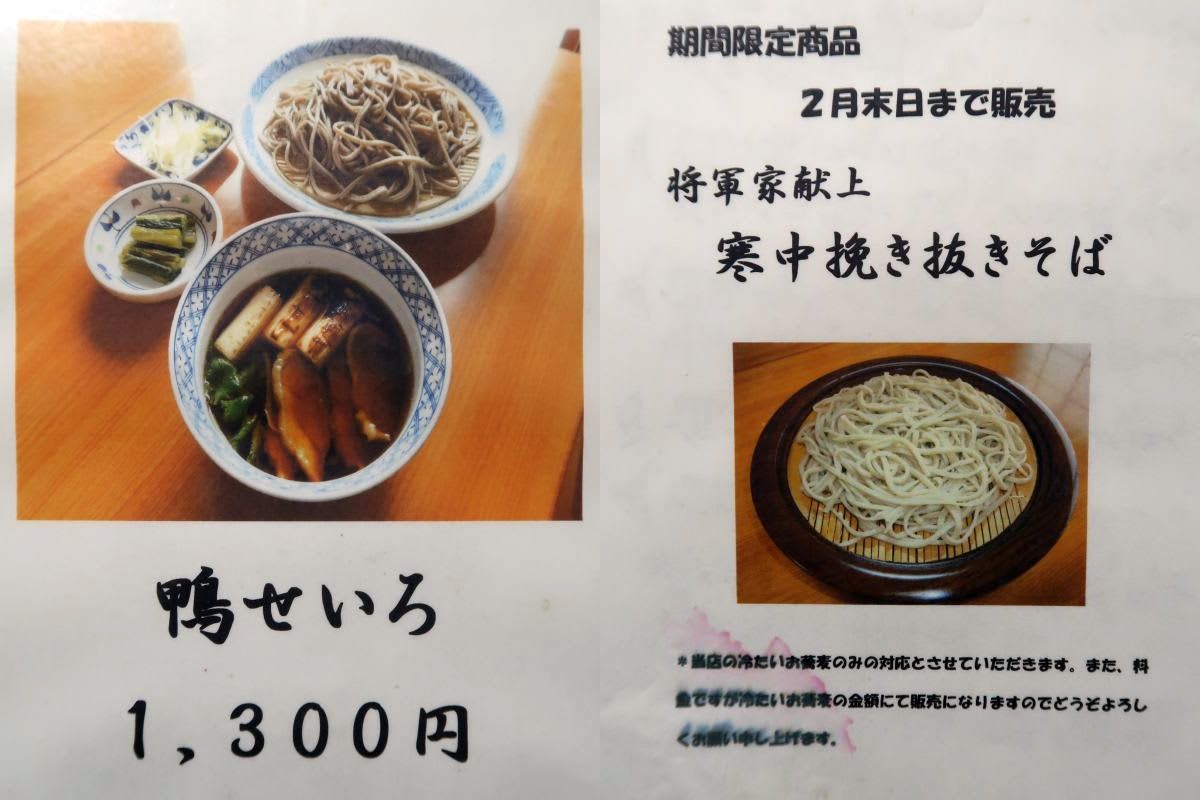 鴨せいろ
１，３００円
期間限定商品
２月末日まで販売
将軍家献上
寒中挽き抜きそば
＊当店の冷たいお蕎麦のみの対応とさせていただきます。また、料
金ですが冷たいお蕎麦の金額にて販売になりますのでどうぞよろし
くお願い申し上げます。